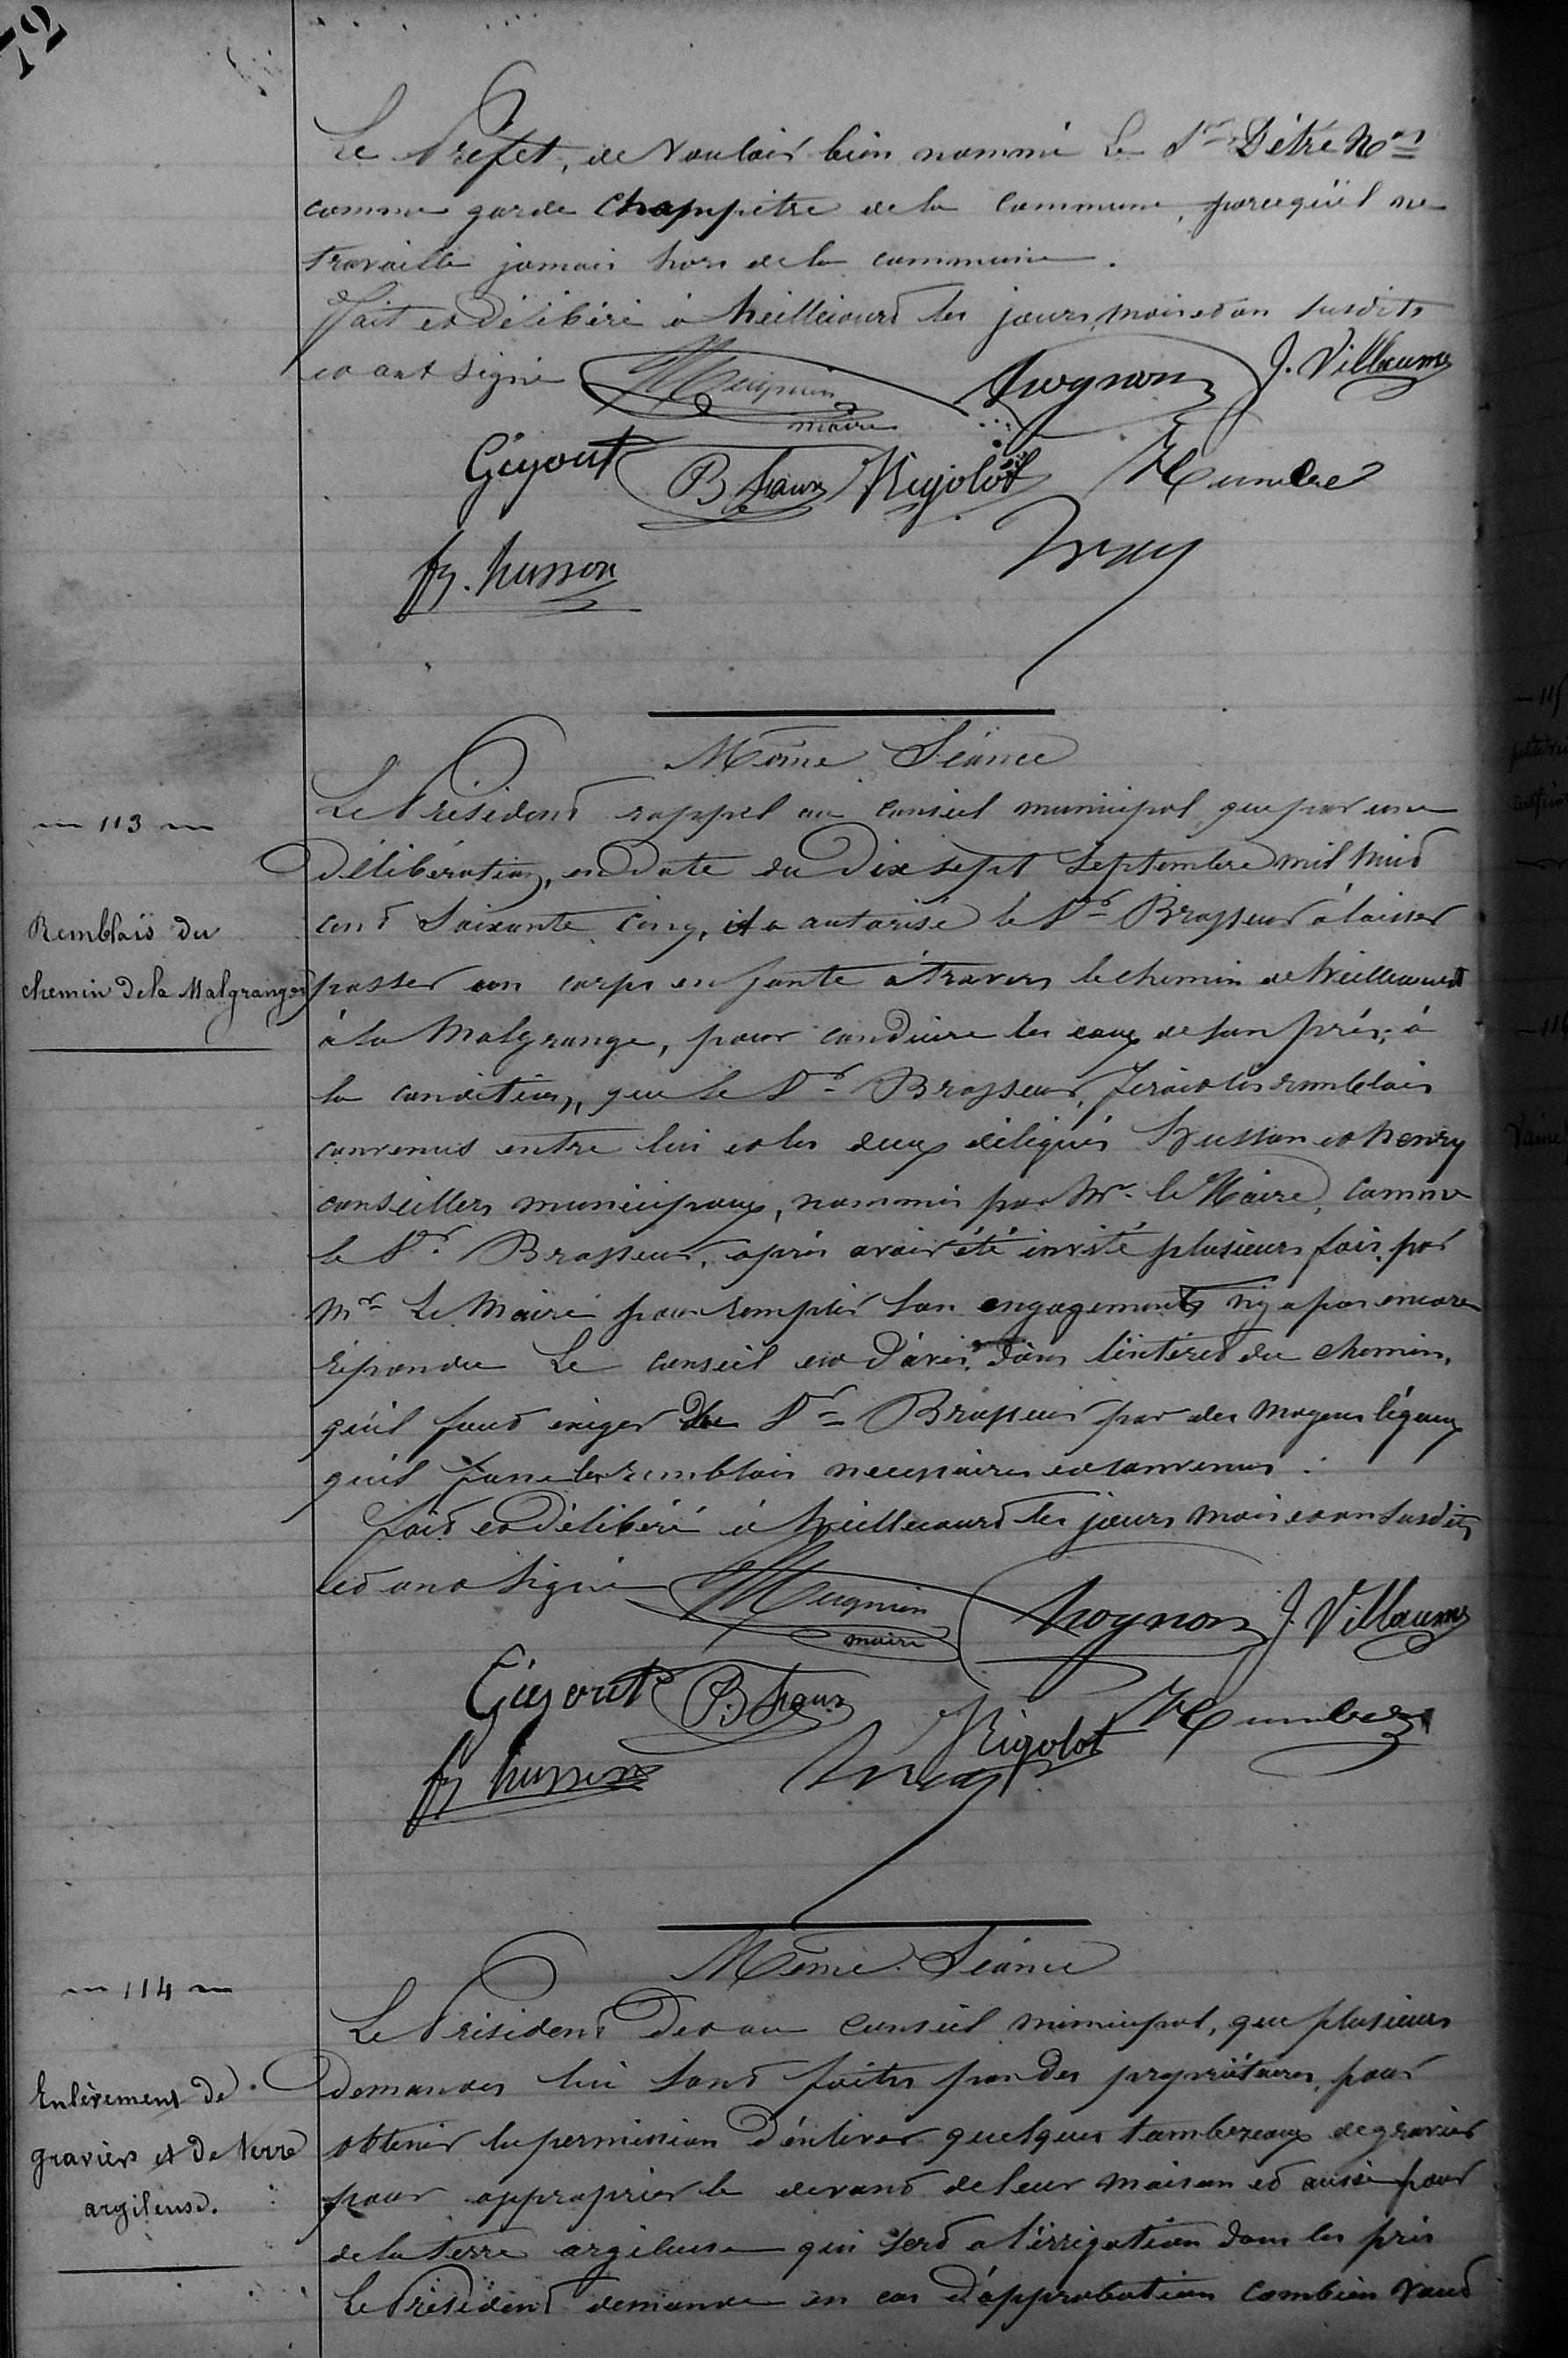 72
Le Préfet, de Vouloir bien nommé Le Sr Détré Nas
comme garde Chappitre de la Commune, parcequ'il ne
travaille jamais hors de la commune.
Fait et Délibéré à heillecourt les jours, mois et an susdits
et ont signé Mugnier maire hognon J. Villaume
Gigout B. haux Rigolot Humbert
fs. husson
Même Séance
— 113 —
Remblais du
chemin de la Malgrange
Le Président rappel au Conseil municipal, que par une
Délibération, en Date du Dix sept Septembre mil huit
cent Soixante cinq, il a autorisé le Sr Brasseur à laisser
passer un corps en fonte à travers le chemin de heillecourt
à la Malgrange, pour conduire les eaux de son prés, à
la condition, que le Sr Brasseur, ferait les remblais
convenus entre lui et les deux délégués husson et henry
conseillers municipaux, nommés par Mr le Maire, Comme
le Sr Brasseur, après avoir été invité plusieurs fois, par
Mr Le Maire pour remplir son engagements n'y a pas encore
répondu Le Conseil est d'avis, dans l'intéret du chemin,
qu'il faut exiger du Sr Brasseur par des moyens légaux
qu'il fasse les remblais necessaires et convenus.
Fait et Délibéré à heillecourt les jours mois et an susdits
et ont signé Mugnier maire hognon J. Villaume
Gigout B. haux Rigolot Humbert
fs husson
Même Séance
— 114 —
Enlèvement de
graviers et de terre
argileuse.
Le Président Dit au Conseil municipal, que plusieurs
demandes lui sont faites par des propriétaires, pour
obtenir la permission d'enlever quelques tombereaux de gravier
pour approprier le devant de leur maison et aussi pour
de la terre argileuse qui sert a l'irrigation dans les prés
Le Président demande en cas d'approbation combien vaud